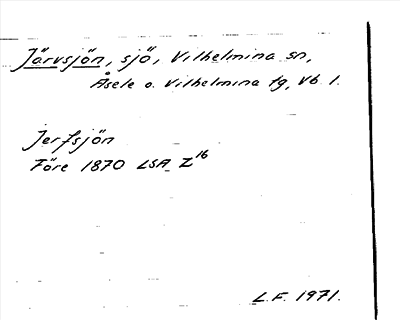 Järvsjön, sjö, Vilhelmina sn,
Åsele o. Vilhelmina tg, Vb l.
Jerfsjön
Före 1870 LSA Z16
L.F. 1971.